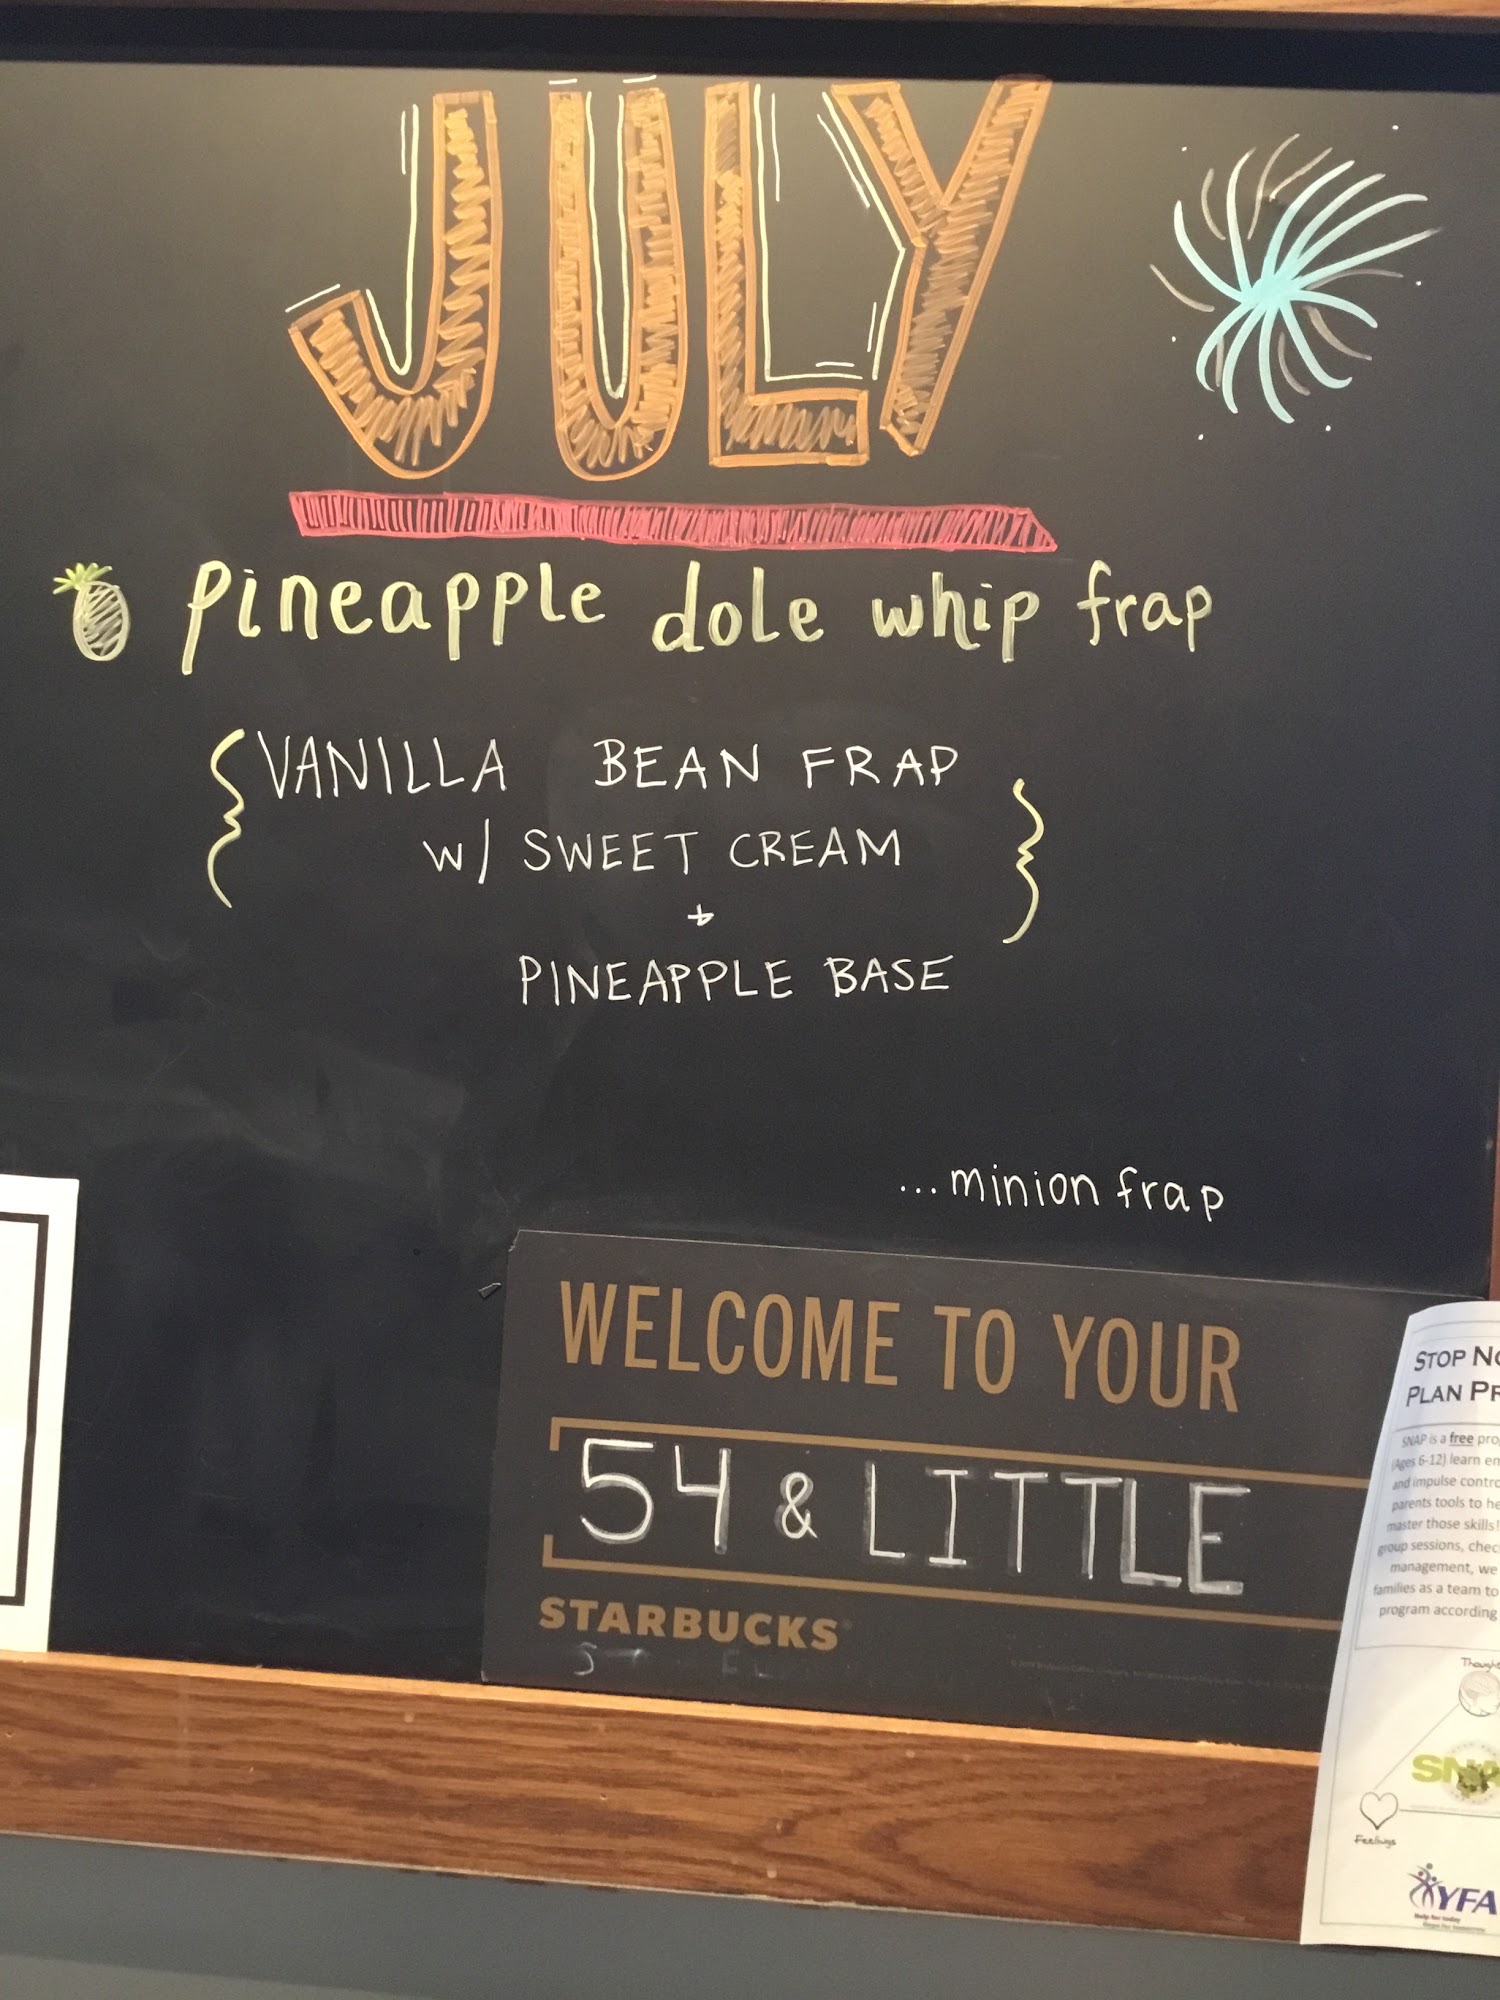 JULY
pineapple dole whip frap
VANILLA BEAN FRAP
w/ SWEET CREAM
+
PINEAPPLE BASE
...minion frap
WELCOME TO YOUR
54 & LITTLE
STARBUCKS
STOP
PLAN
SNAP is a free
(Ages 6-12) learn
and impulse
parents tools to
master those skills!
group sessions,
management, we
families as a team to
program according
Feelings
YFA
Help for today
Hope for tomorrow